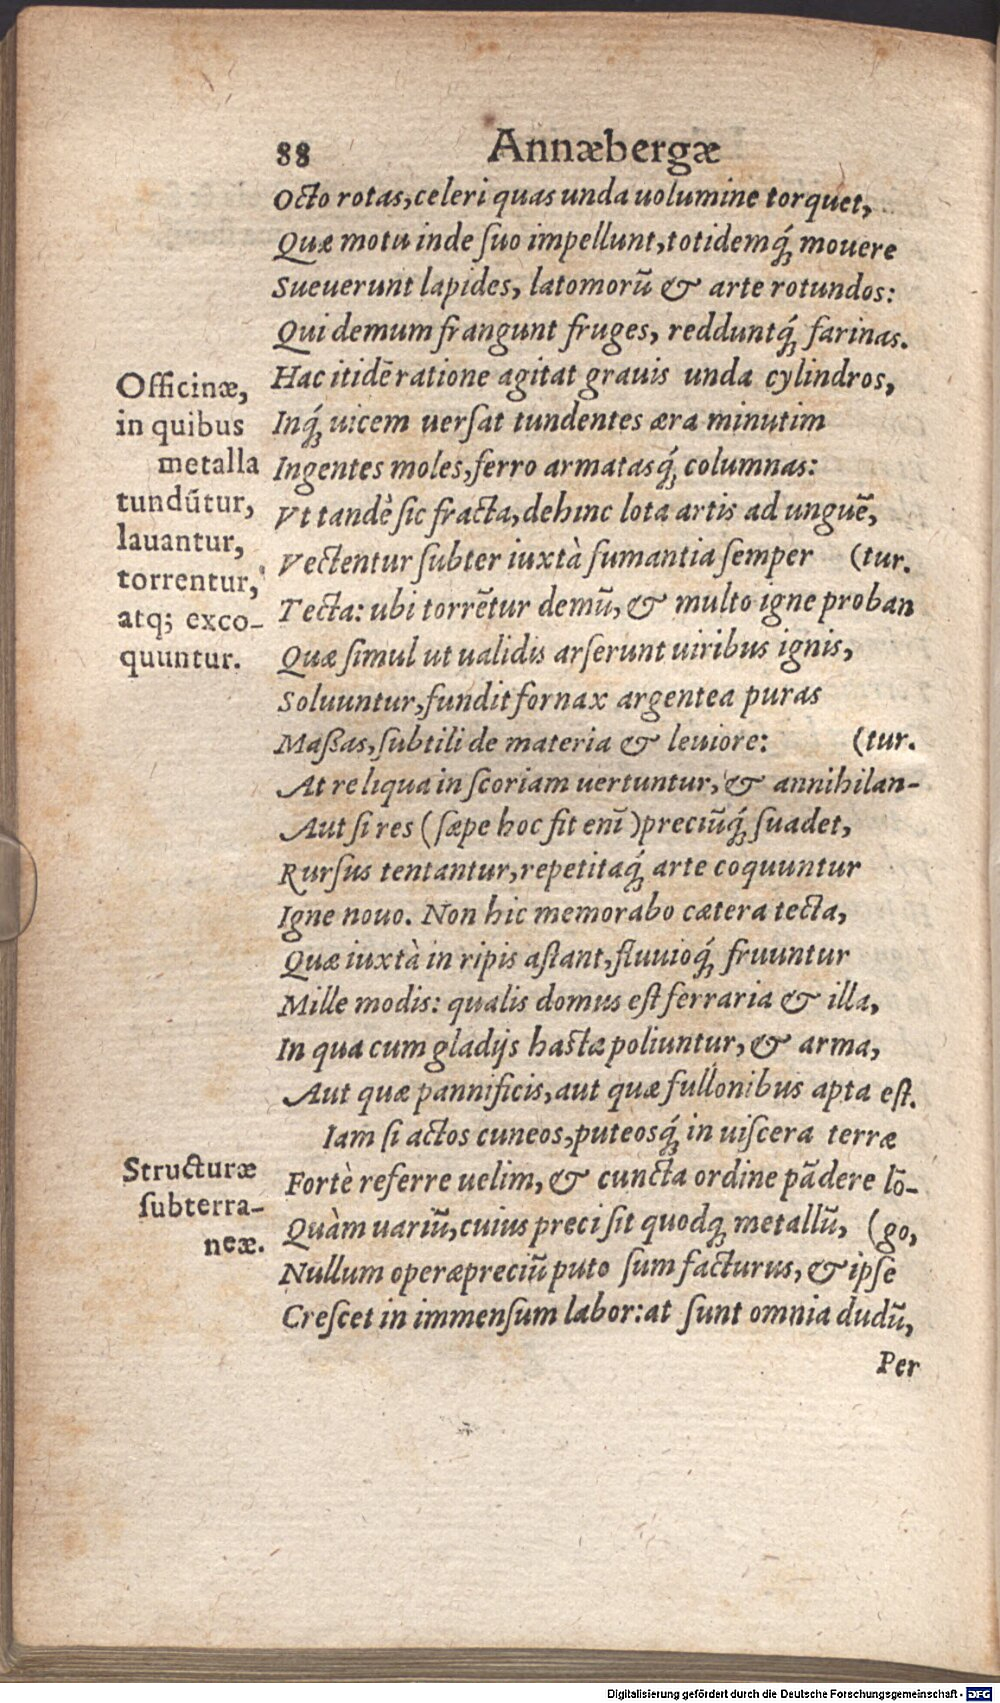 88 Annæbergæ
Octo rotas, celeri quas unda uolumine torquet,
Quæ motu inde ſuo impellunt, totidemq́ue mouere
Sueuerunt lapides, latomorũ & arte rotundos:
Qui demum frangunt fruges, redduntq́ue farinas.
Hac itidẽ ratione agitat grauis unda cylindros,
Inq́ue uicem uerſat tundentes æra minutim
Ingentes moles, ferro armatasq́ue columnas:
Vt tandẽ ſic fracta, dehinc lota artis ad unguẽ,
Vectentur ſubter iuxtà fumantia ſemper (tur.
Tecta: ubi torrẽtur demũ, & multo igne proban
Quæ ſimul ut ualidis arſerunt uiribus ignis,
Soluuntur, fundit fornax argentea puras
Maßas, ſubtili de materia & leuiore: (tur.
At reliqua in ſcoriam uertuntur, & annihilan-
Aut ſi res (ſæpe hoc fit enĩ) preciũq́ue ſuadet,
Rurſus tentantur, repetitaq́ue arte coquuntur
Igne nouo. Non hic memorabo cætera tecta,
Quæ iuxtà in ripis aſtant, fluuioq́ue fruuntur
Mille modis: qualis domus eſt ferraria & illa,
In qua cum gladijs haſtæ poliuntur, & arma,
Aut quæ pannificis, aut quæ fullonibus apta eſt.
Iam ſi actos cuneos, puteosq́ue in uiſcera terræ
Fortè referre uelim, & cuncta ordine pãdere lõ-
Quàm uariũ, cuius preci ſit quodque metallũ, (go,
Nullum operæpreciũ puto ſum facturus, & ipſe
Creſcet in immenſum labor: at ſunt omnia dudũ,
Per
Officinæ,
in quibus
metalla
tundũtur,
lauantur,
torrentur,
atq; exco-
quuntur.
Structuræ
ſubterra-
neæ.
Digitalisierung gefördert durch die Deutsche Forschungsgemeinschaft - DFG